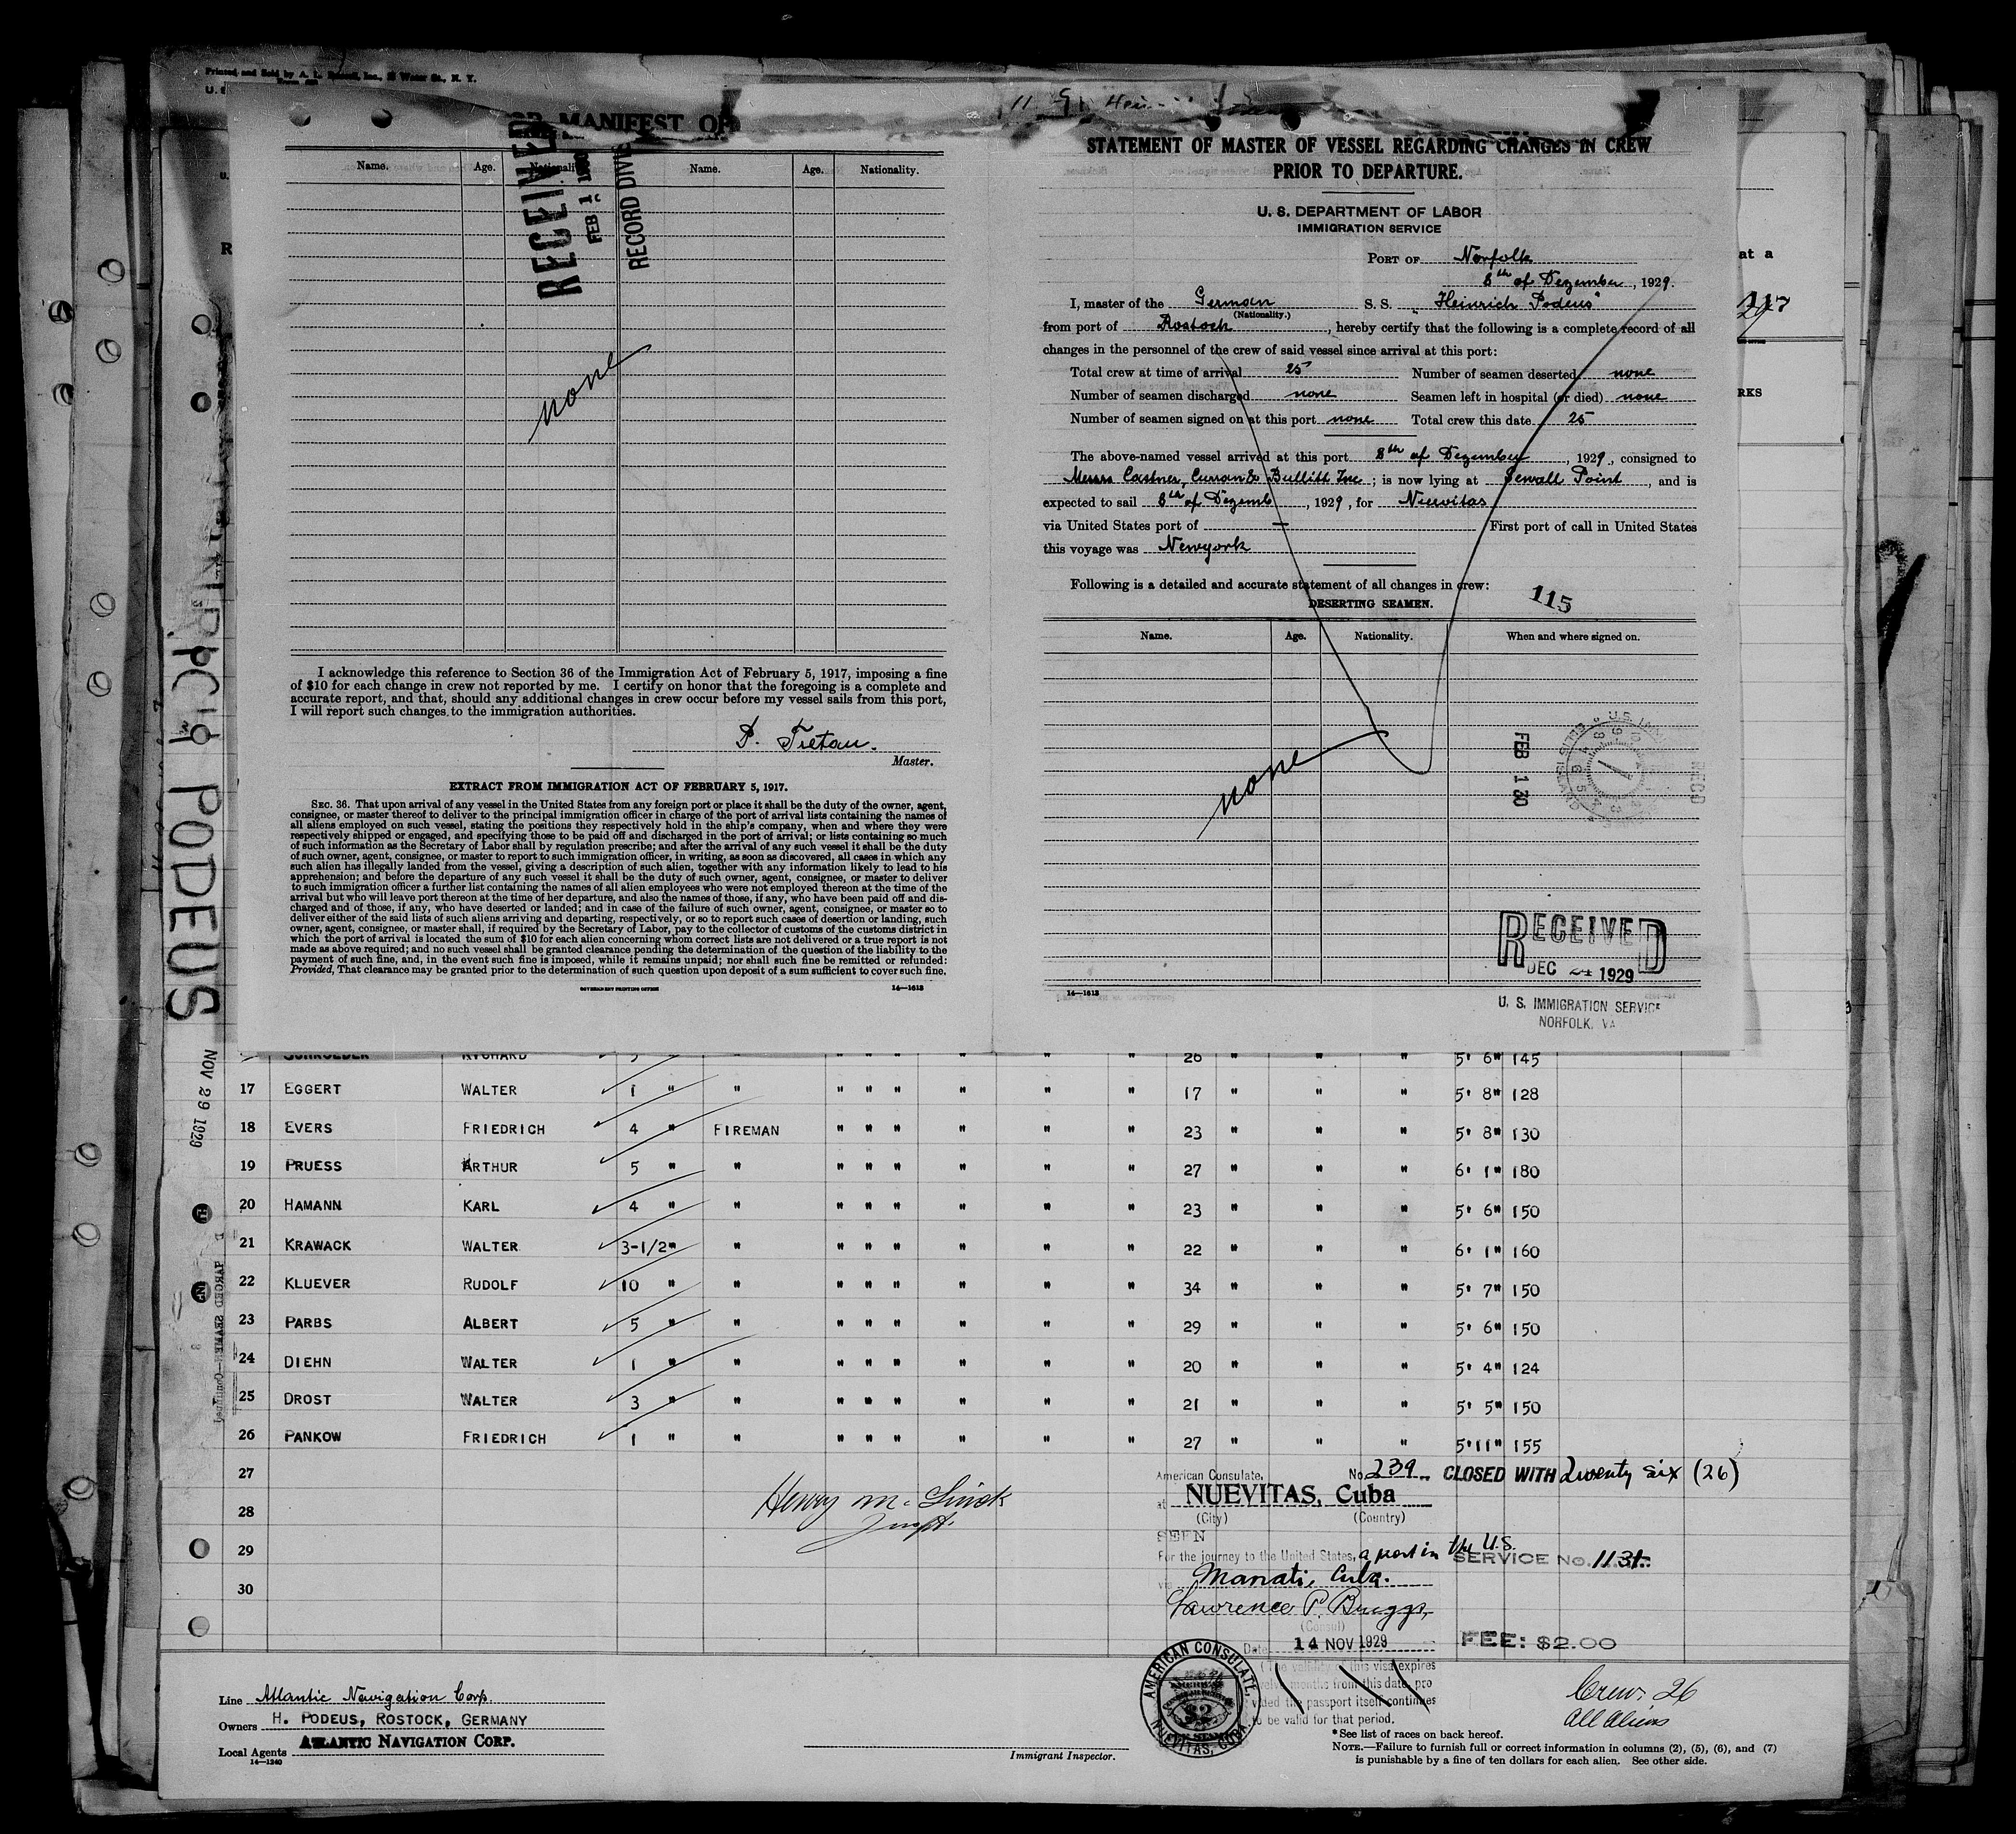 Printed and Sold by A. L. Russell, Inc., Water St., N. Y.
MANIFEST OF
Name. Age. Nationality. Name. Age. Nationality.
RECEIVED
FEB 1 1930
RECORD DIVI
none
I acknowledge this reference to Section 36 of the Immigration Act of February 5, 1917, imposing a fine
of $10 for each change in crew not reported by me. I certify on honor that the foregoing is a complete and
accurate report, and that, should any additional changes in crew occur before my vessel sails from this port,
I will report such changes to the immigration authorities.
Master.
EXTRACT FROM IMMIGRATION ACT OF FEBRUARY 5, 1917.
SEC. 36. That upon arrival of any vessel in the United States from any foreign port or place it shall be the duty of the owner, agent,
consignee, or master thereof to deliver to the principal immigration officer in charge of the port of arrival lists containing the names of
all aliens employed on such vessel, stating the positions they respectively hold in the ship's company, when and where they were
respectively shipped or engaged, and specifying those to be paid off and discharged in the port of arrival; or lists containing so much
of such information as the Secretary of Labor shall by regulation prescribe; and after the arrival of any such vessel it shall be the duty
of such owner, agent, consignee, or master to report to such immigration officer, in writing, as soon as discovered, all cases in which any
such alien has illegally landed from the vessel, giving a description of such alien, together with any information likely to lead to his
apprehension; and before the departure of any such vessel it shall be the duty of such owner, agent, consignee, or master to deliver
to such immigration officer a further list containing the names of all alien employees who were not employed thereon at the time of the
arrival but who will leave port thereon at the time of her departure, and also the names of those, if any, who have been paid off and dis-
charged and of those, if any, who have deserted or landed; and in case of the failure of such owner, agent, consignee, or master so to
deliver either of the said lists of such aliens arriving and departing, respectively, or so to report such cases of desertion or landing, such
owner, agent, consignee, or master shall, if required by the Secretary of Labor, pay to the collector of customs of the customs district in
which the port of arrival is located the sum of $10 for each alien concerning whom correct lists are not delivered or a true report is not
made as above required; and no such vessel shall be granted clearance pending the determination of the question of the liability to the
payment of such fine, and, in the event such fine is imposed, while it remains unpaid; nor shall such fine be remitted or refunded:
Provided, That clearance may be granted prior to the determination of such question upon deposit of a sum sufficient to cover such fine.
GOVERNMENT PRINTING OFFICE 14—1613
STATEMENT OF MASTER OF VESSEL REGARDING CHANGES IN CREW
PRIOR TO DEPARTURE.
U. S. DEPARTMENT OF LABOR
IMMIGRATION SERVICE
PORT OF Norfolk
8th of Dezember, 1929.
I, master of the German S. S. "Heinrich Podeus"
(Nationality.)
from port of Rostock, hereby certify that the following is a complete record of all
changes in the personnel of the crew of said vessel since arrival at this port:
Total crew at time of arrival 25 Number of seamen deserted none
Number of seamen discharged none Seamen left in hospital (or died) none
Number of seamen signed on at this port none Total crew this date 25
The above-named vessel arrived at this port 8th of Dezember, 1929, consigned to
Messrs Castner, Curran & Bullitt Inc; is now lying at Sewall Point, and is
expected to sail 8th of Dezemb, 1929, for Nuevitas
via United States port of — First port of call in United States
this voyage was Newyork
Following is a detailed and accurate statement of all changes in crew:
115
DESERTING SEAMEN.
Name. Age. Nationality. When and where signed on.
none
FEB 1 30
RECEIVED
DEC 24 1929
U. S. IMMIGRATION SERVICE
NORFOLK, VA
14—1613
at a
RKS
PODEUS
NOV 29 1929
SCHROEDER RICHARD 26 " " " 5' 6" 145
17 EGGERT WALTER 1 " " " " " " " " 17 " " " 5' 8" 128
18 EVERS FRIEDRICH 4 " FIREMAN " " " " " " 23 " " " 5' 8" 130
19 PRUESS ARTHUR 5 " " " " " " " " 27 " " " 6' 1" 180
20 HAMANN KARL 4 " " " " " " " " 23 " " " 5' 6" 150
21 KRAWACK WALTER 3-1/2" " " " " " " " 22 " " " 6' 1" 160
22 KLUEVER RUDOLF 10 " " " " " " " " 34 " " " 5' 7" 150
23 PARBS ALBERT 5 " " " " " " " " 29 " " " 5' 6" 150
24 DIEHN WALTER 1 " " " " " " " " 20 " " " 5' 4" 124
25 DROST WALTER 3 " " " " " " " " 21 " " " 5' 5" 150
26 PANKOW FRIEDRICH 1 " " " " " " " " 27 " " " 5'11" 155
27
28
29
30
American Consulate, No. 239 CLOSED WITH Twenty six (26)
at NUEVITAS, Cuba
(City) (Country)
SEEN
For the journey to the United States, a port in the U.S.
SERVICE No. 1131
via Manati, Cuba.
Lawrence P. Briggs,
(Consul)
Date 14 NOV 1929 FEE: $2.00
(The validity of this visa expires
twelve months from this date, pro
ded the passport itself continues
to be valid for that period.
AMERICAN CONSULATE, NUEVITAS, CUBA.
Henry M.
Inspt.
Line Atlantic Navigation Corp.
Owners H. PODEUS, ROSTOCK, GERMANY
Local Agents ATLANTIC NAVIGATION CORP.
14—1240
Immigrant Inspector.
Crew, 26
All Aliens
*See list of races on back hereof.
NOTE.—Failure to furnish full or correct information in columns (2), (5), (6), and (7)
is punishable by a fine of ten dollars for each alien. See other side.